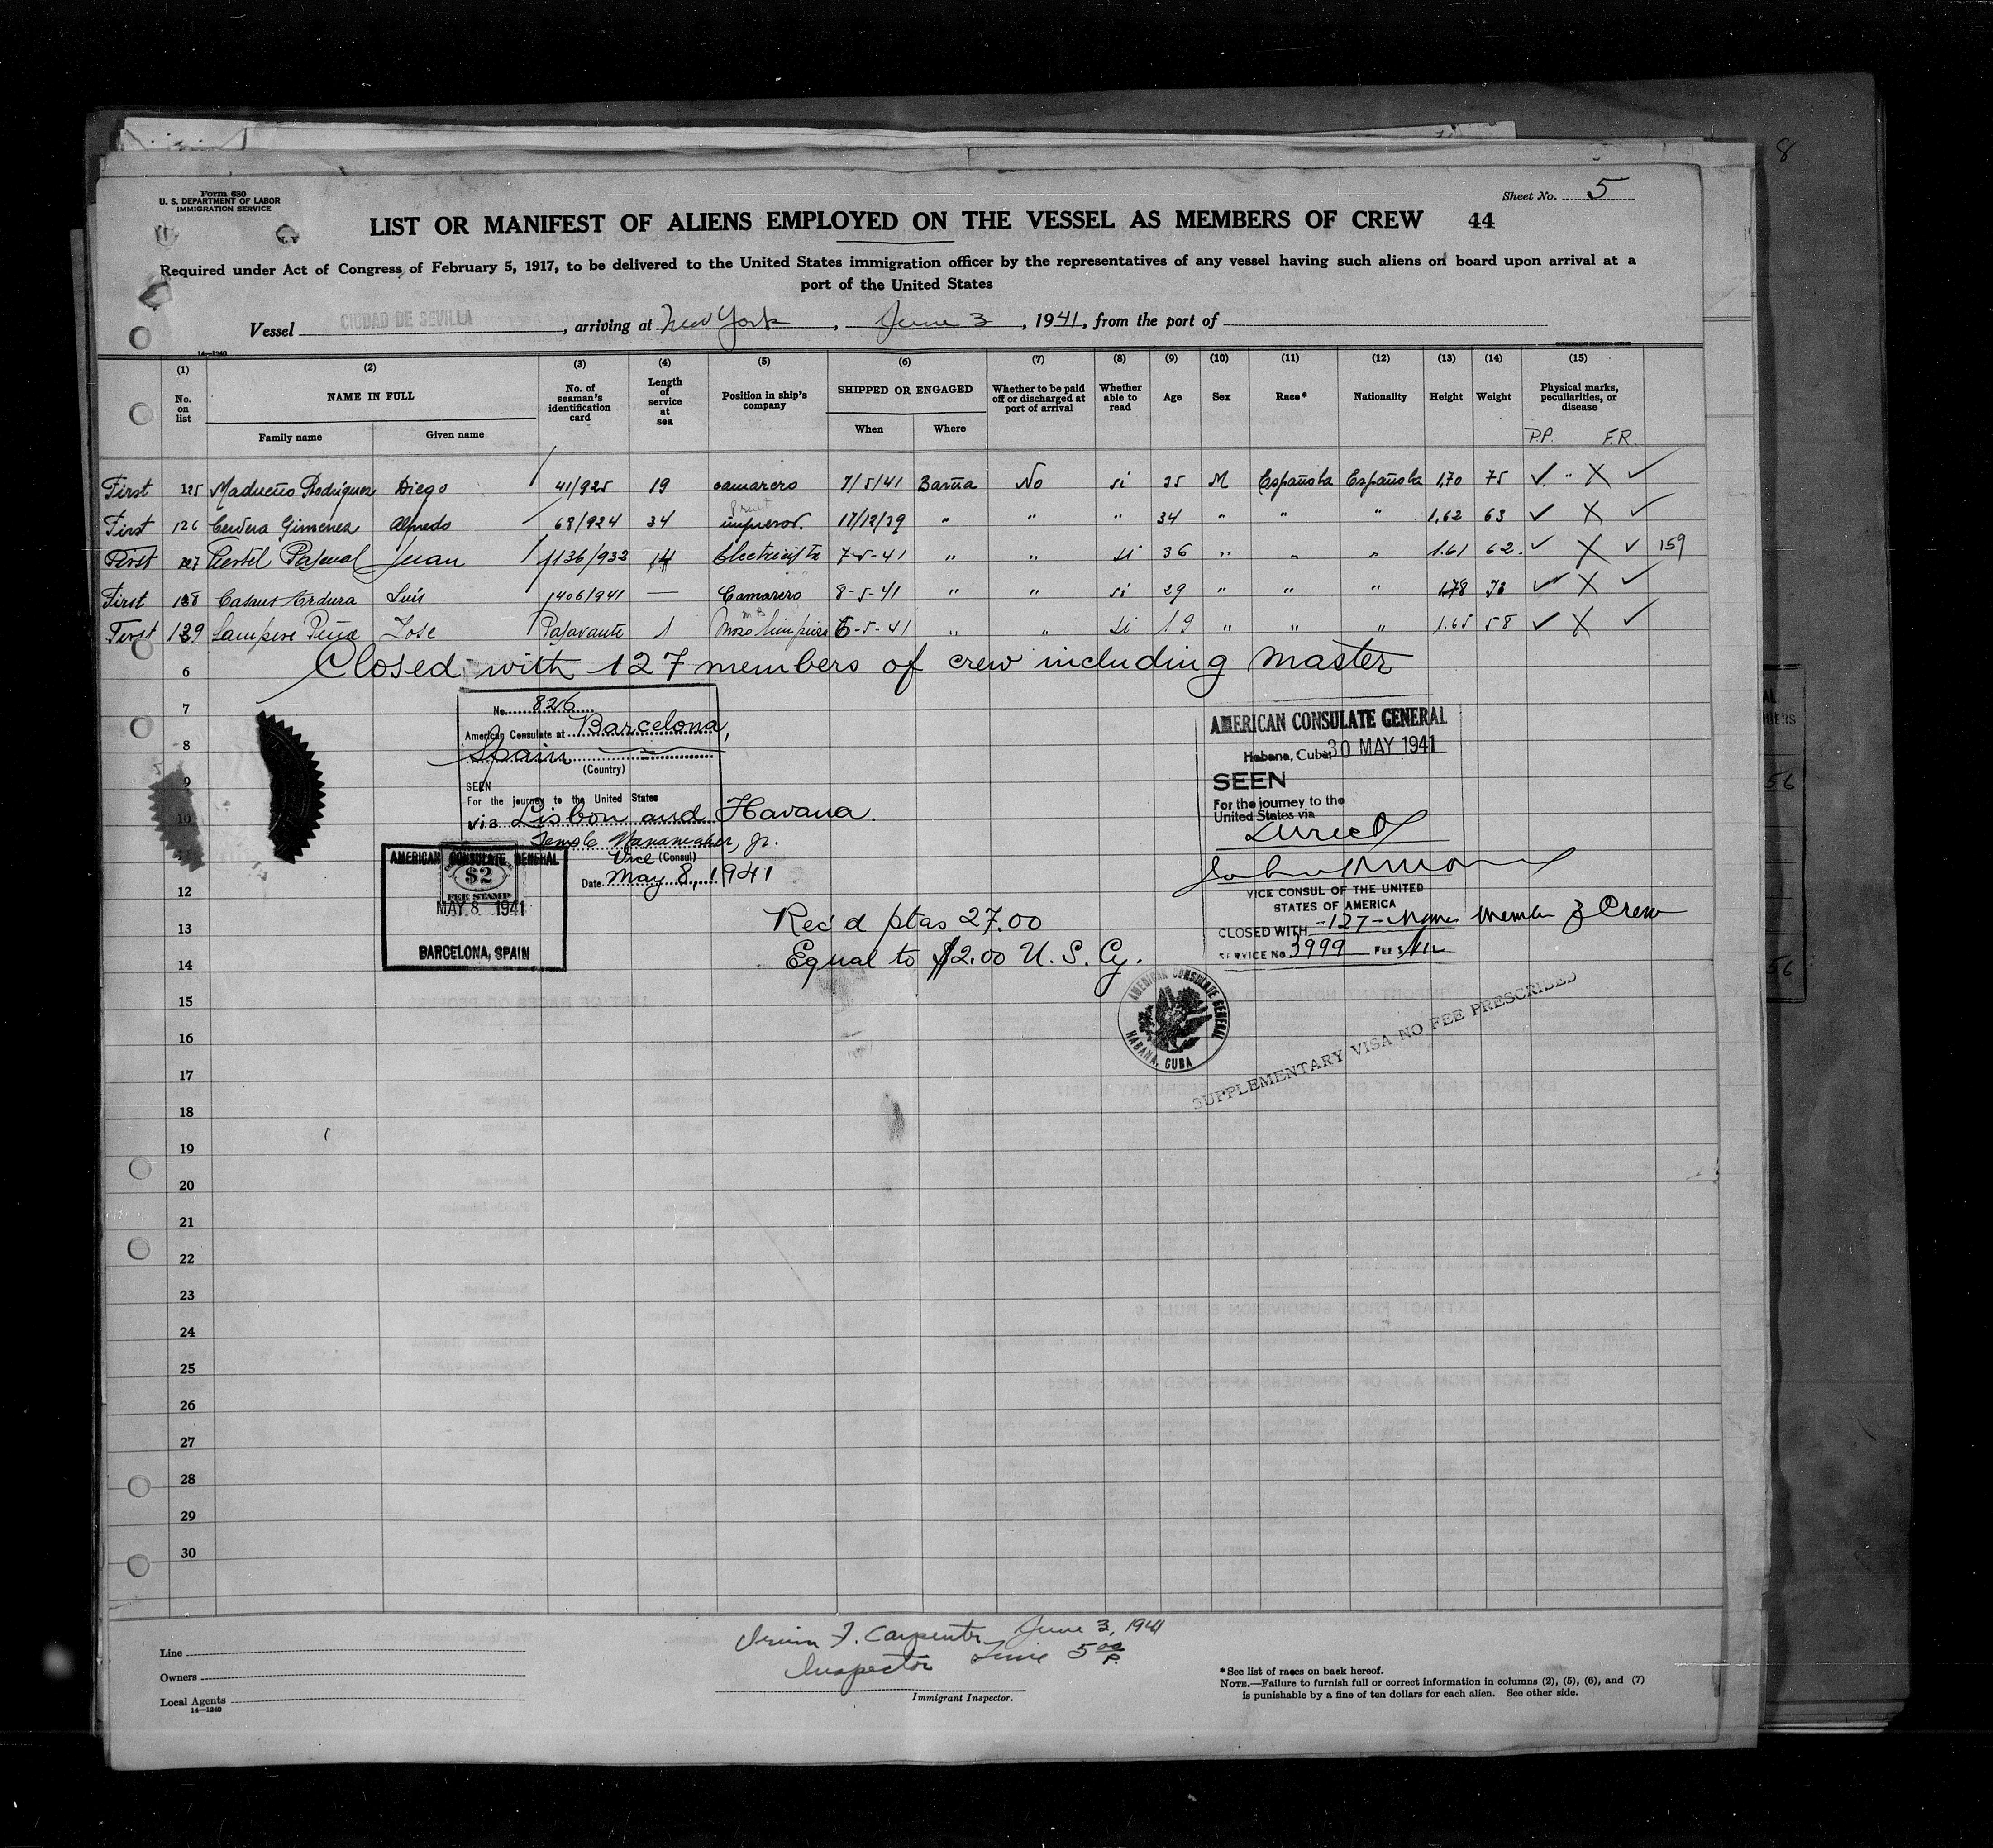 8
Form 680
U. S. DEPARTMENT OF LABOR
IMMIGRATION SERVICE
Sheet No. 5
LIST OR MANIFEST OF ALIENS EMPLOYED ON THE VESSEL AS MEMBERS OF CREW 44
Required under Act of Congress of February 5, 1917, to be delivered to the United States immigration officer by the representatives of any vessel having such aliens on board upon arrival at a
port of the United States
Vessel CIUDAD DE SEVILLA, arriving at New York, June 3, 1941, from the port of
14—1240
(1) (2) (3) (4) (5) (6) (7) (8) (9) (10) (11) (12) (13) (14) (15)
No. on list NAME IN FULL No. of seaman's identification card Length of service at sea Position in ship's company SHIPPED OR ENGAGED Whether to be paid off or discharged at port of arrival Whether able to read Age Sex Race* Nationality Height Weight Physical marks, peculiarities, or disease
Family name Given name When Where P.P. F.R.
First 125 Madueño Rodriguez Diego 41/925 19 camarero 7/5/41 Barña No si 35 M Española Española 1,70 75 ✓ " X ✓
First 126 Cervera Gimenez Alfredo 68/924 34 17/12/39 " " " 34 " " " 1,62 63 ✓ X ✓
First 127 Pascual Juan 1136/932 14 Electricista 7-5-41 " " si 36 " " " 1.61 62 ✓ X ✓ 159
First 128 Ardura Luis 1406/941 — Camarero 8-5-41 " " si 29 " " " 1.78 73 ✓ X ✓
First 129 Sampere Piña Jose Pasavante 1 Mozo limpieza 6-5-41 " " si 19 " " " 1.65 58 ✓ X ✓
6 Closed with 127 members of crew including master
7
8
9
10
11
12
13
14
15
16
17
18
19
20
21
22
23
24
25
26
27
28
29
30
No. 826
American Consulate at Barcelona,
Spain
(Country)
SEEN
For the journey to the United States
via Lisbon and Havana.
Temple Wanamaker, Jr.
Vice (Consul)
Date May 8, 1941
AMERICAN CONSULATE GENERAL
$2
FEE STAMP
MAY 8 1941
BARCELONA, SPAIN
Rec'd ptas 27.00
Equal to $2.00 U. S. Cy.
AMERICAN CONSULATE GENERAL
Habana, Cuba, 30 MAY 1941
SEEN
For the journey to the
United States via
Direct
VICE CONSUL OF THE UNITED
STATES OF AMERICA
CLOSED WITH -127- Members of Crew
SERVICE No. 3999 FEE $ Nil
AMERICAN CONSULATE GENERAL
HABANA, CUBA
SUPPLEMENTARY VISA NO FEE PRESCRIBED
56
56
Line
Owners
Local Agents
14—1240
F. Carpenter June 3, 1941
Inspector Time 5 00 P.
Immigrant Inspector.
*See list of races on back hereof.
NOTE.—Failure to furnish full or correct information in columns (2), (5), (6), and (7)
is punishable by a fine of ten dollars for each alien. See other side.